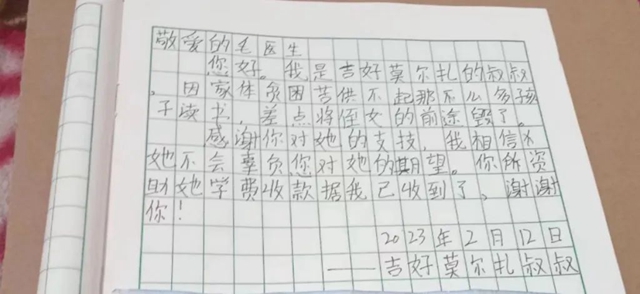 敬爱的毛医生
您好。我是吉好莫尔扎的叔叔
，因家体贫困苦供不起那么多孩
子读书，差点将侄女的前途毁了。
感谢你对她的支技，我相信
她不会辜负您对她的期望。你所资
财她学费收款据我已收到了，谢谢
你！
2023年2月12日
——吉好莫尔扎叔叔